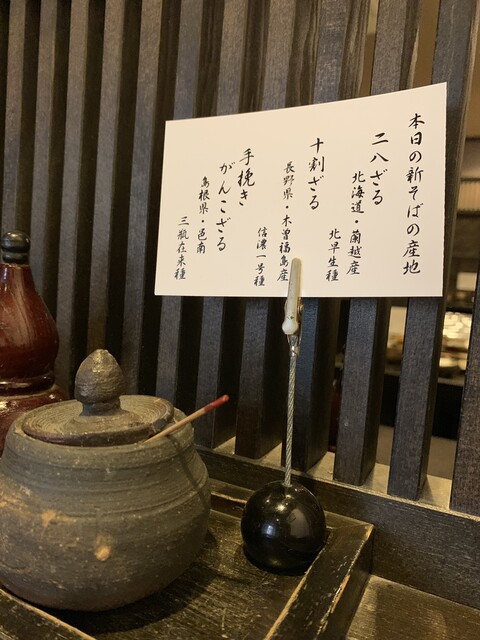 本日の新そばの産地
二八ざる
北海道・蘭越産
北早生種
十割ざる
長野県・木曽福島産
信濃一号種
手挽き
がんこざる
島根県・邑南
三瓶在来種